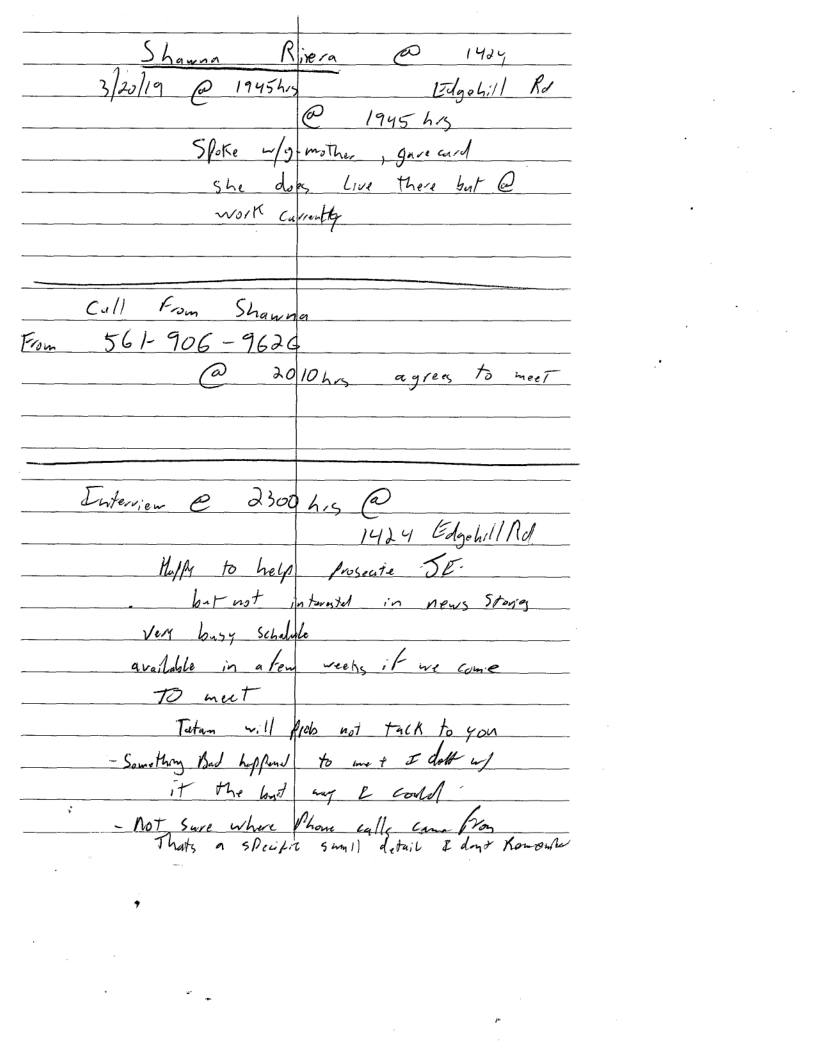 Shawna Rivera @ 1424
3/20/19 @ 1945hrs Edgehill Rd
@ 1945 hrs
Spoke w/g-mother, gave card
she does Live there but @
work currently
Call From Shawna
From 561-906-9626
@ 2010hrs agrees to meet
Interview @ 2300 hrs @
1424 Edgehill Rd
Happy to help prosecute JE.
but not interested in news stories
very busy schedule
available in a few weeks if we come
TO meet
Tatum will prob not talk to you
- Something Bad happened to me + I dealt w/
it the best way I could
- Not sure where Phone calls came from
Thats a specific small detail I dont Remember